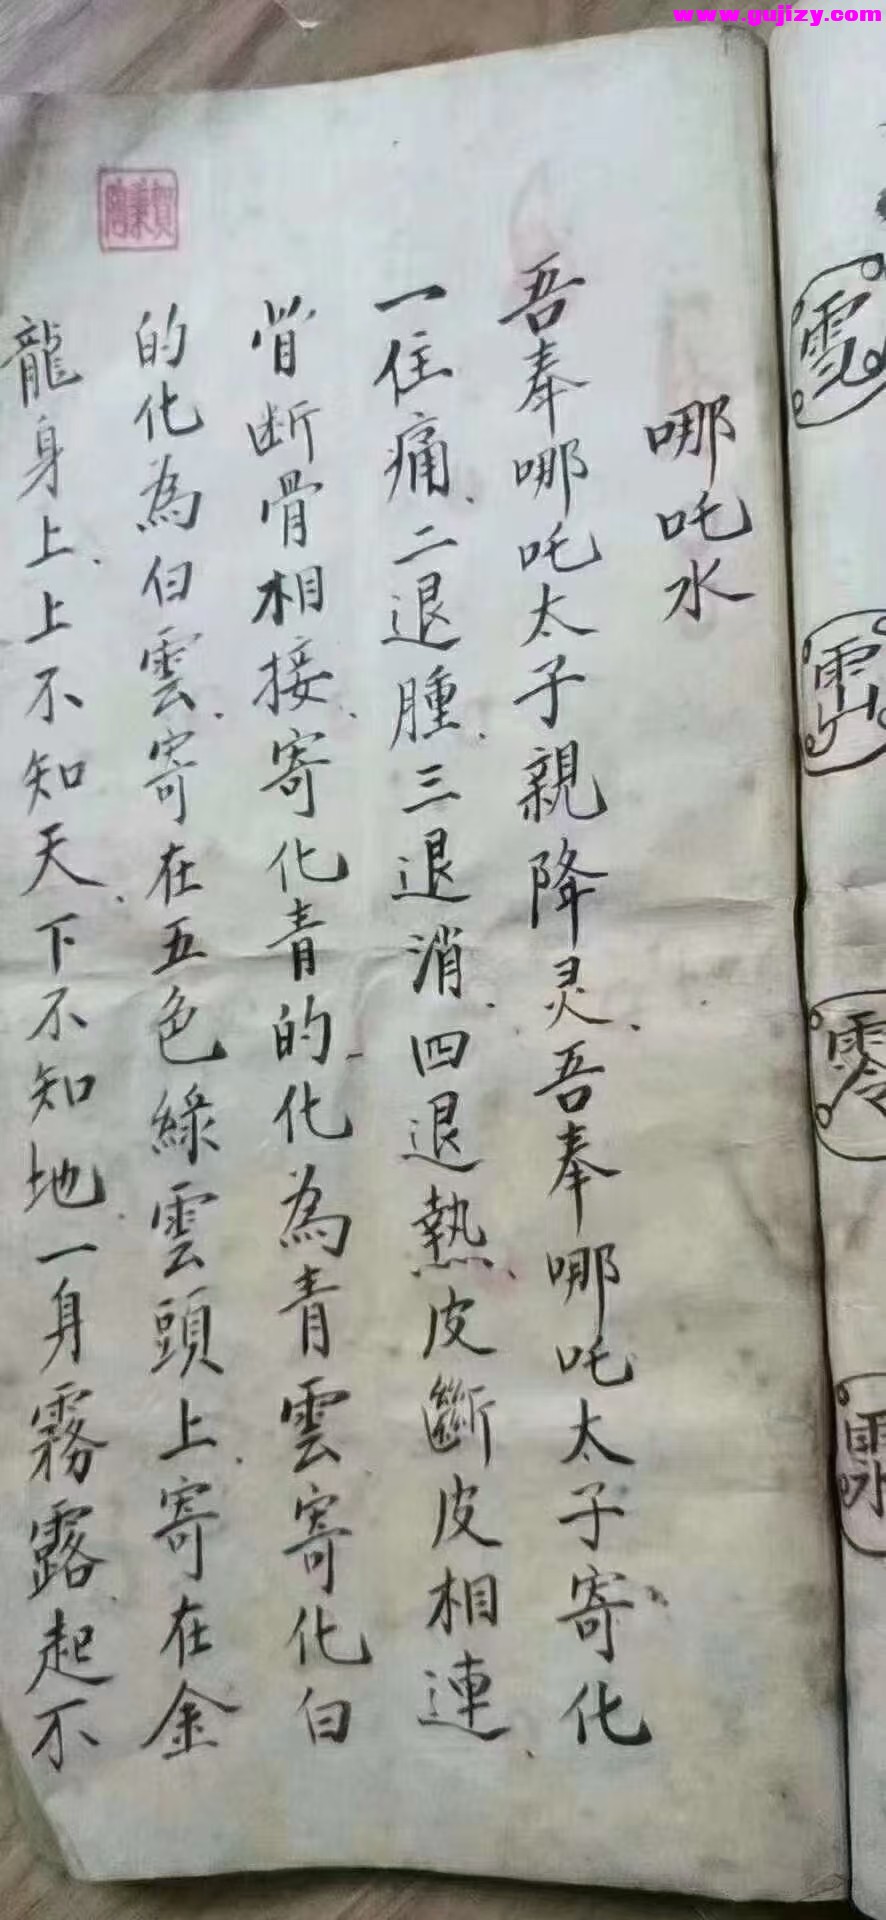 www.gujizy.com
哪吒水
吾奉哪吒太子親降灵吾奉哪吒太子寄化
一住痛二退腫三退消四退熱皮斷皮相連
骨断骨相接寄化青的化為青雲寄化白
的化為白雲寄在五色綠雲頭上寄在金
龍身上上不知天下不知地一身霧露起不